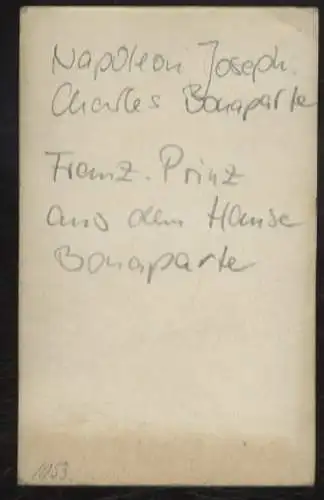 Napoleon Joseph.
Charles Bonaparte
Franz. Prinz
aus dem Hause
Bonaparte
1153